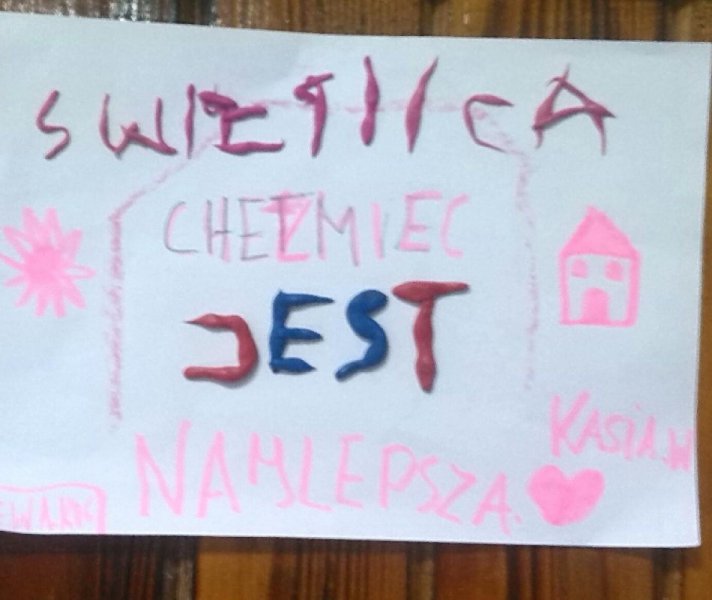 SWIETLICA
CHEŁMIEC
JEST
NAJLEPSZA.
KASIA.W